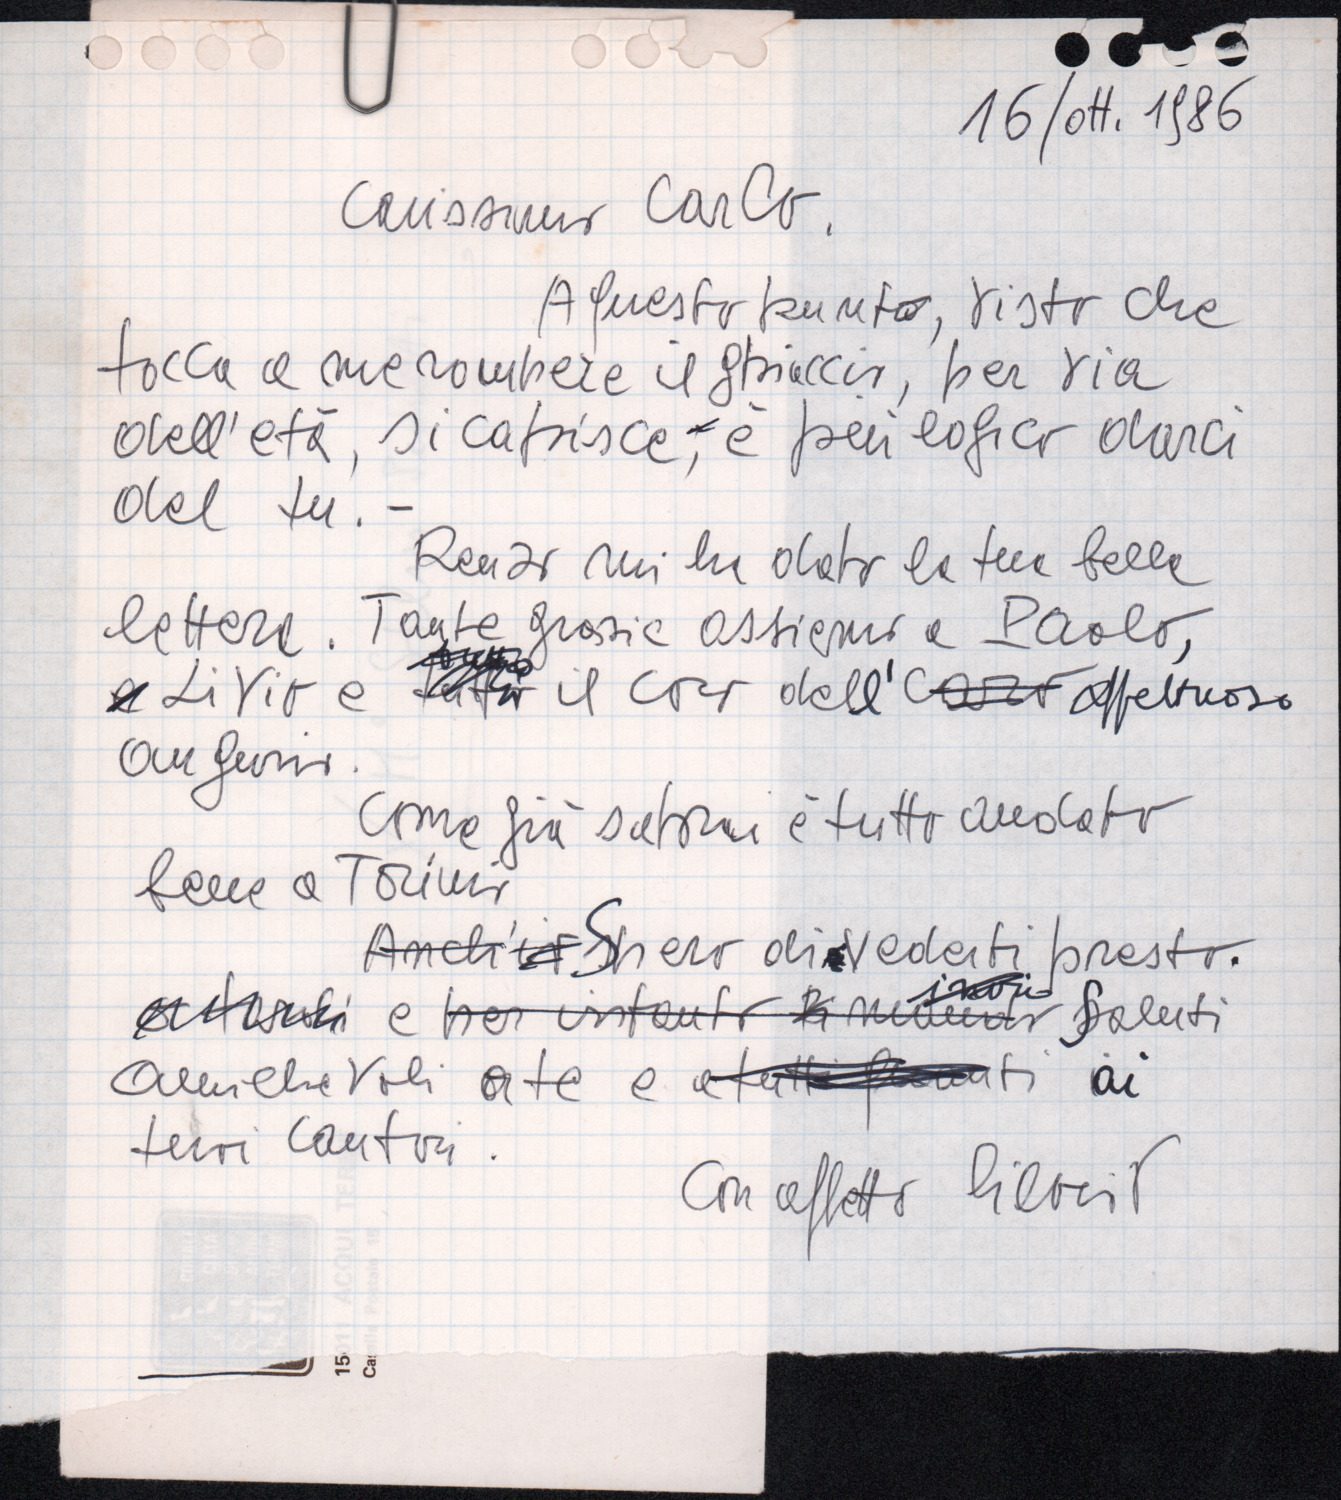 16/ott. 1986
Carissimo Carlo.
A questo punto, visto che
tocca a me rompere il ghiaccio, per via
dell'età, si capisce, è più logico darci
del tu. -
Renzo mi ha dato la tua bella
lettera. Tante grazie assieme a Paolo,
a Livio e il coro dell' affettuoso
augurio.
Come già saprai è tutto andato
bene a Torino
Anch'io Spero di vederti presto.
e per intanto invio Saluti
amichevoli a te e a tutti quanti ai
tuoi cantori.
Con affetto Silvio
ACQUI TER
15
Cas